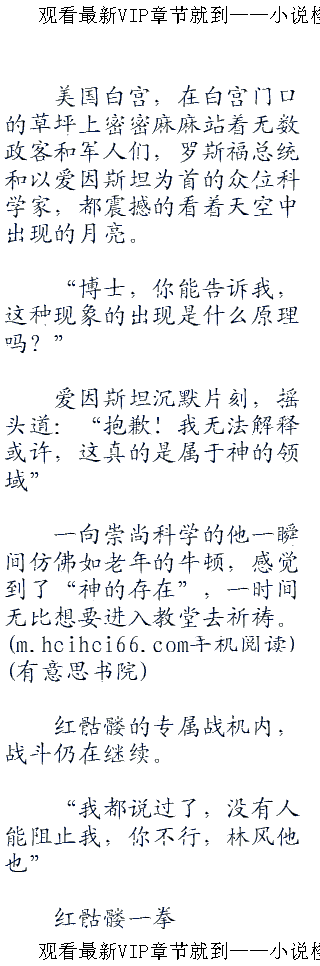 观看最新VIP章节就到——小说楼
美国白宫，在白宫门口
的草坪上密密麻麻站着无数
政客和军人们，罗斯福总统
和以爱因斯坦为首的众位科
学家，都震撼的看着天空中
出现的月亮。
“博士，你能告诉我，
这种现象的出现是什么原理
吗？”
爱因斯坦沉默片刻，摇
头道：“抱歉！我无法解释
或许，这真的是属于神的领
域”
一向崇尚科学的他一瞬
间仿佛如老年的牛顿，感觉
到了“神的存在”，一时间
无比想要进入教堂去祈祷。
(m.hcihci66.com手机阅读)
(有意思书院)
红骷髅的专属战机内，
战斗仍在继续。
“我都说过了，没有人
能阻止我，你不行，林风他
也”
红骷髅一拳
观看最新VIP章节就到——小说楼